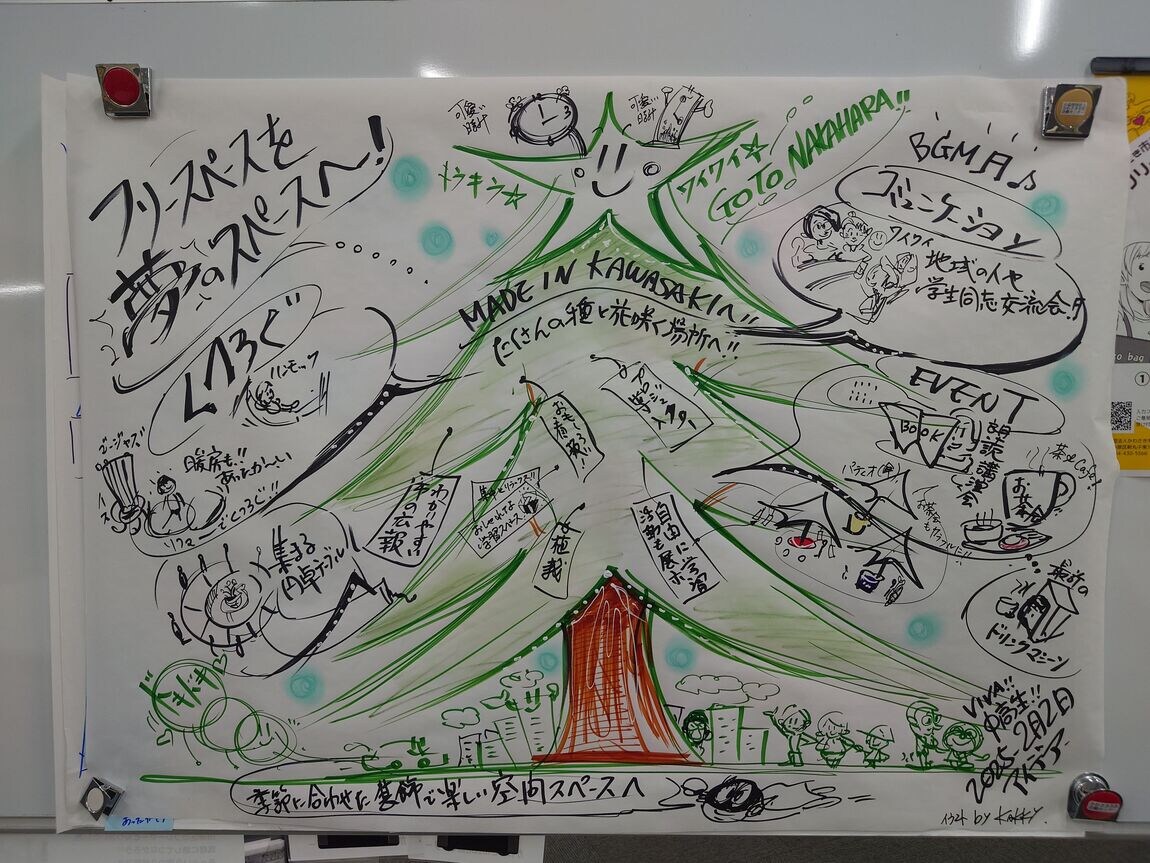 フリースペースを
夢のスペースへ!
可愛い
時計
可愛い
時計
メウキン☆
ワイワイ☆
TOTO NAKAHARA!!
BGM 月♪
コミュニケーション
ワイワイ
地域の人や
学生同志交流会!!
MADE IN KAWASAKIへ!!
たくさんの種と花咲く場所へ!!
くつろぐ
ハンモック
ゴージャズ
イス
暖房も!!
あたたかーい
ソファ
でくつろぐ!!
集まる
円卓テーブル
わかりやすい
字の広報
おもしろい
看板!!
集中とリラックス!!
おしゃれな
学習スペース
植栽
自由に学習
活動も展示
EVENT
BOOK
朗読講演会
茶道Cafe!
お茶会
パラソル(傘)
お茶会
もカラフルに!!
最新の
ドリンクマシーン
ドキドキ
VIVA!!
中高生!!
2025.2月2日
アイデア
季節に合わせた装飾で楽しい空間スペースへ
イラスト by KaKKy.